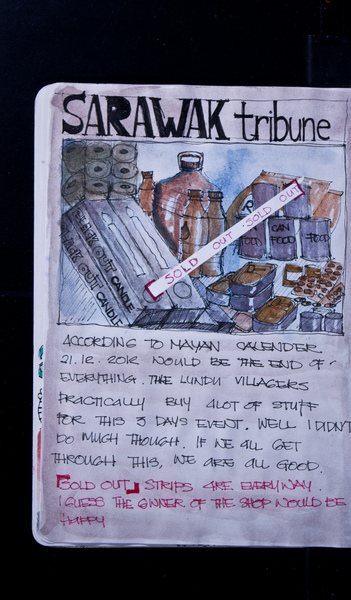 SARAWAK tribune
SOLD OUT SOLD OUT
CAN
FOOD
FOOD
FOOD
BLACK OUT CANDLE
BLACK OUT CANDLE
ACCORDING TO MAYAN CALENDER
21.12.2012 WOULD BE THE END OF
EVERYTHING. THE LUNDU VILLAGERS
PRACTICALLY BUY ALOT OF STUFF
FOR THIS 3 DAYS EVENT. WELL I DIDN'T
DO MUCH THOUGH. IF WE ALL GET
THROUGH THIS, WE ARE ALL GOOD.
"SOLD OUT" STRIPS ARE EVERYWAY.
I GUESS THE OWNER OF THE SHOP WOULD BE
HAPPY